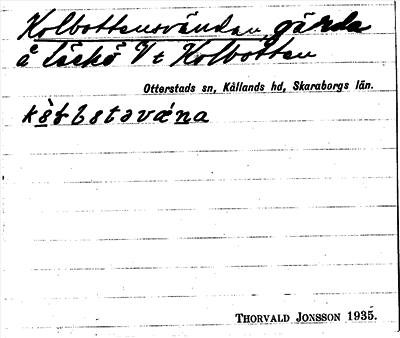 Kolbottensvändan, gärda
å Läckö V t Kolbotten
Otterstads sn, Kållands hd, Skaraborgs län.
THORVALD JONSSON 1935.